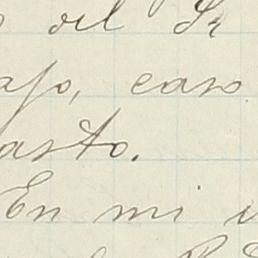 del Sr
ajo, caso
asto.
En mi